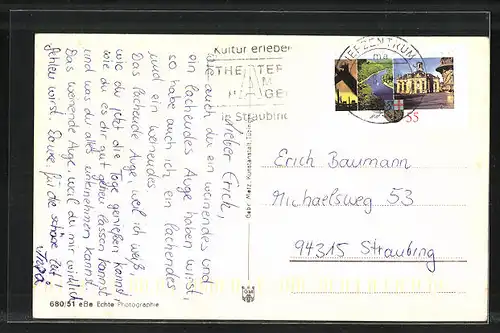 Lieber Erich,
wie auch du ein weinendes und
ein lachendes Auge haben wirst,
so habe auch ich ein lachendes
und ein weinendes.
Das lachende Auge weil ich weiß,
wie du jetzt die Tage genießen kannst
wie du es dir gut gehen lassen kannst
und was du alles unternehmen kannst.
Das weinende Auge weil du mir wirklich
fehlen wirst. Danke für die schöne Zeit!
Kultur erleben
THEATER
AM
HAGEN
in Straubing
BRIEFZENTRUM
55
Erich Baumann
Michaelsweg 53
94315 Straubing
Gebr. Metz, Kunstanstalt, Tübingen
680/51 eBe Echte Photographie